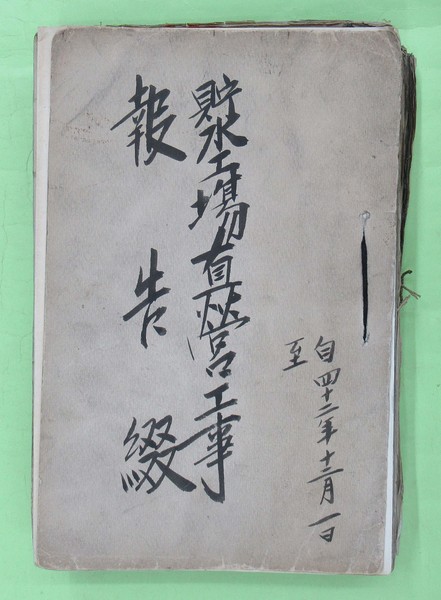 自四十二年十二月一日
至
貯水工場直営工事
報告綴